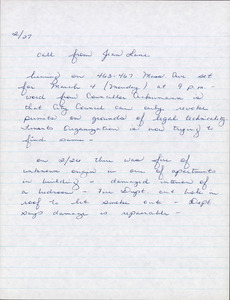 2/27
call from Jean Luce
hearing on 463-467 Mass Ave set
for March 4 (Monday) at 9 p.m. -
word from Councillor Ackermann is
that City Council can only revoke
permits on grounds of legal technicality
Tenants Organization is now trying to
find some -
on 2/26 there was fire of
unknown origin in one of apartments
in building - damaged interior of
a bedroom - Fire Dept. cut hole in
roof to let smoke out - Dept.
says damage is repairable -